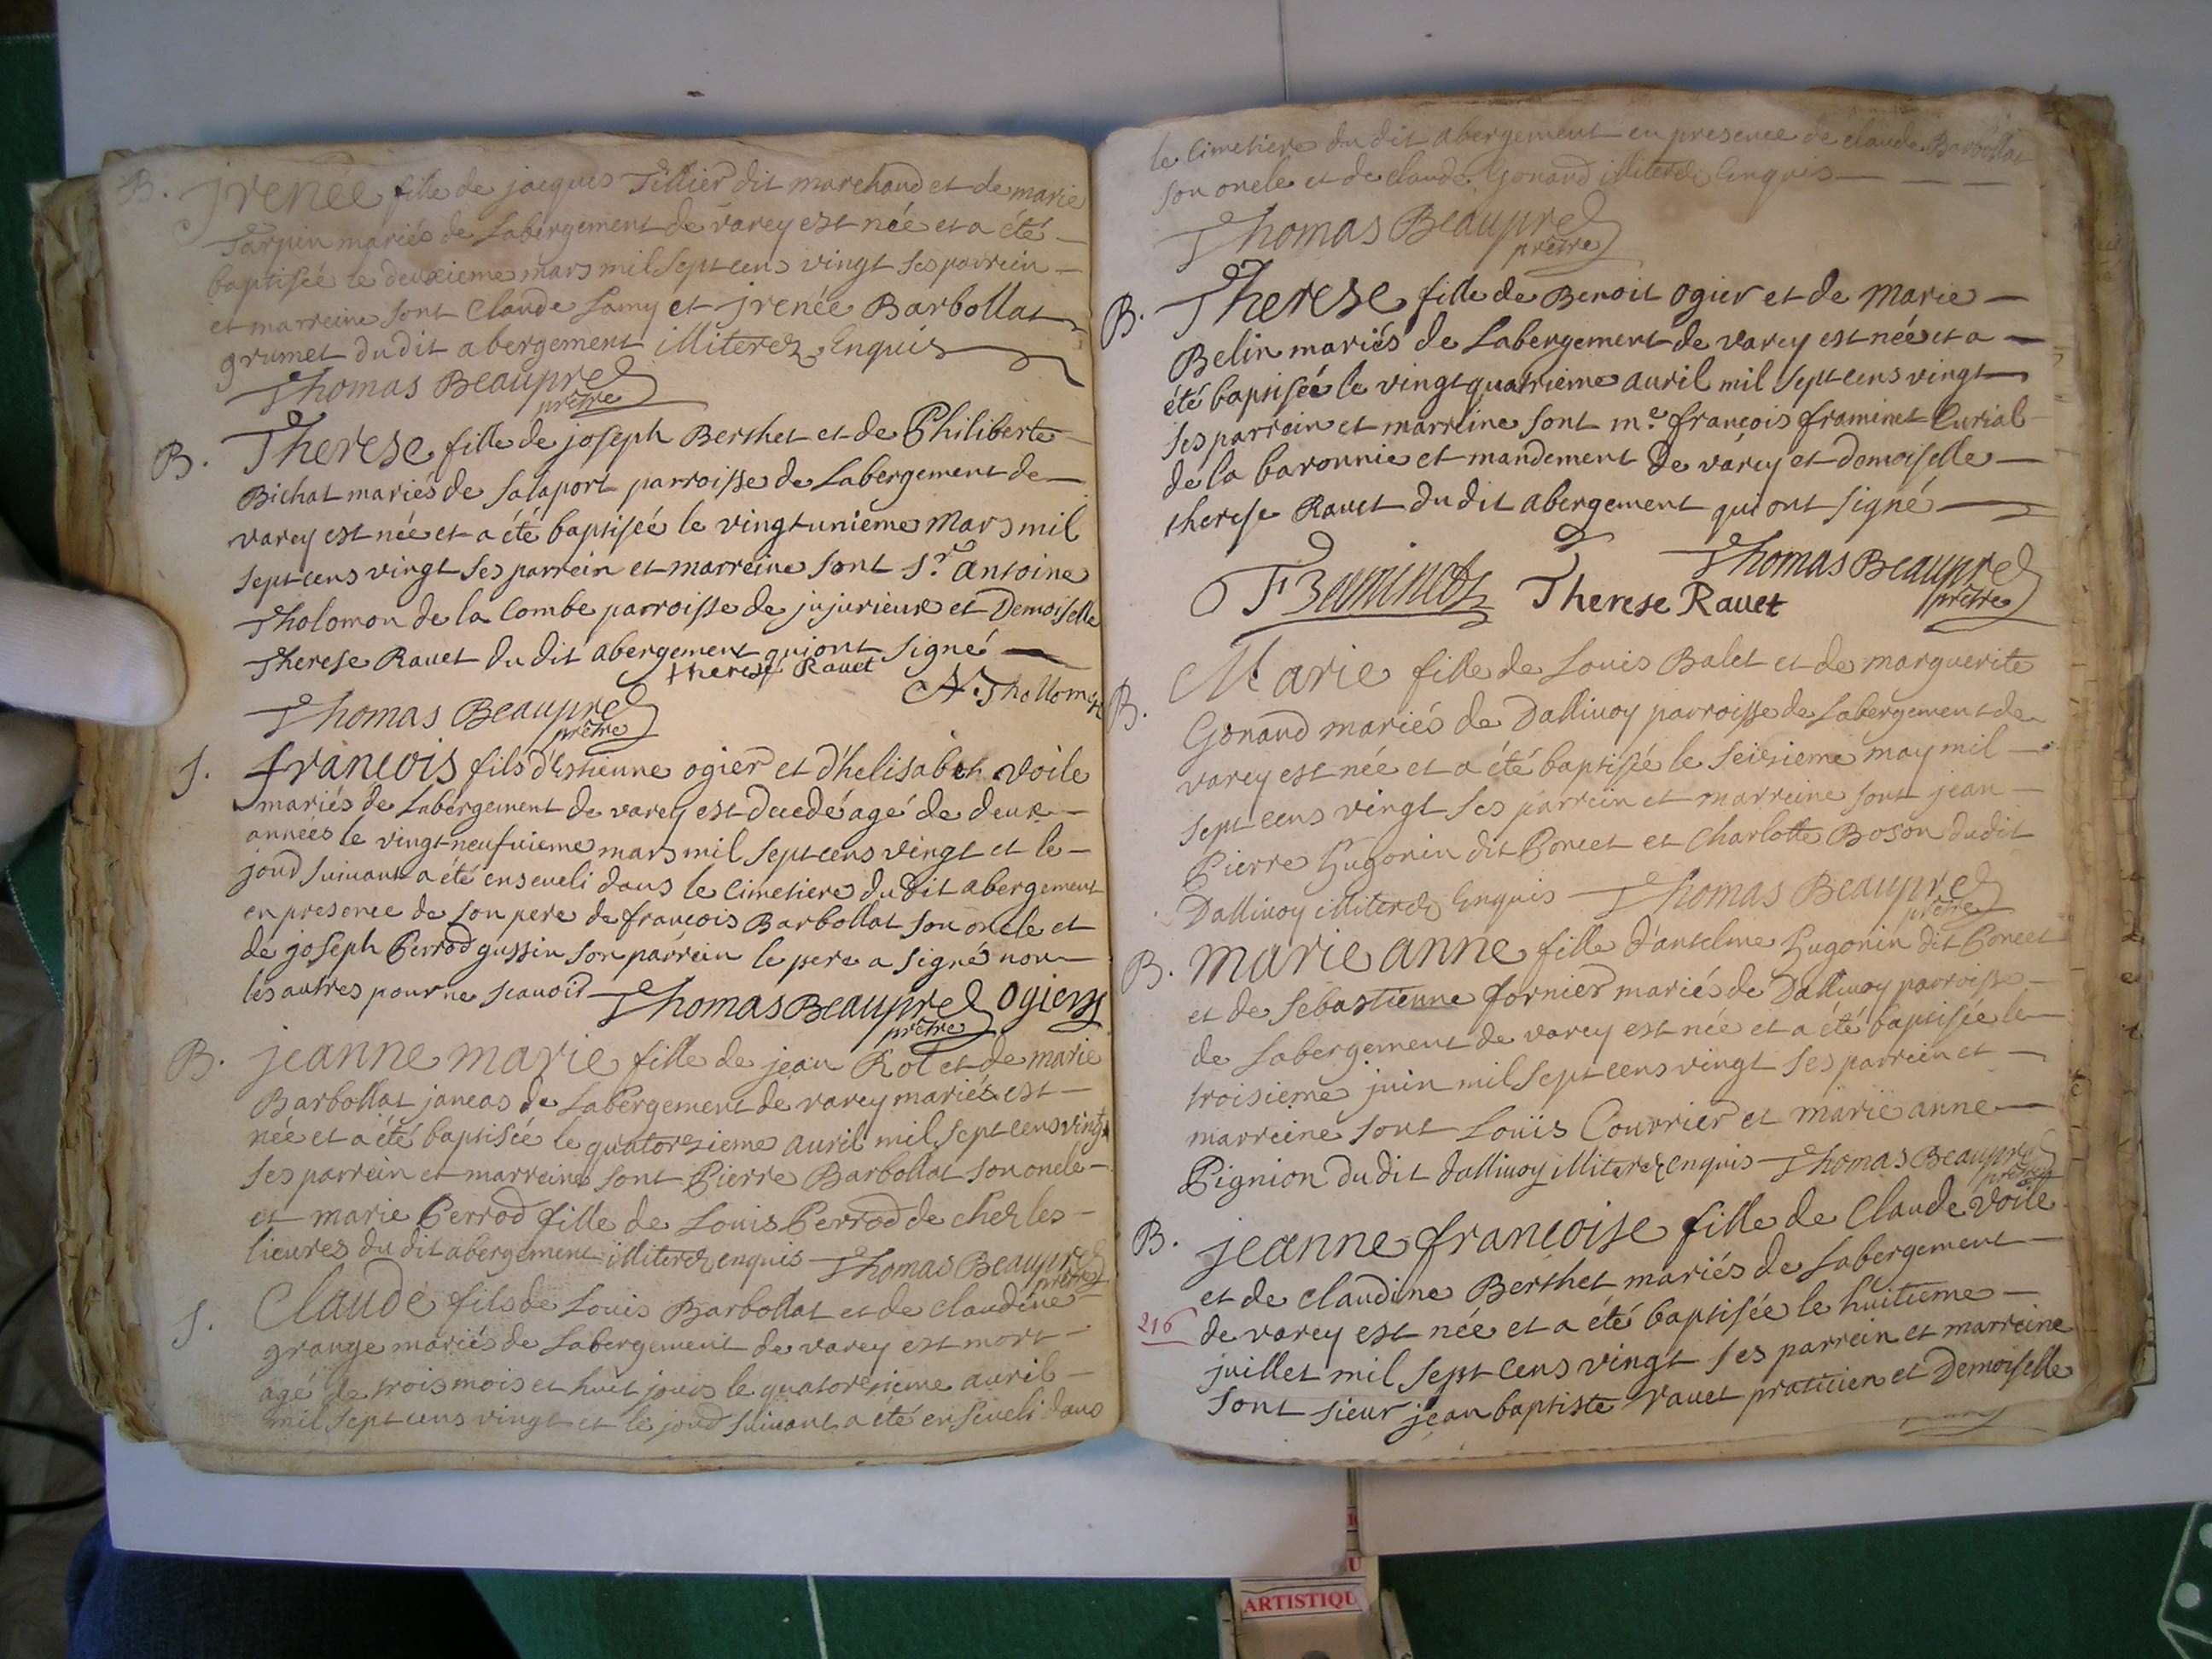 B. Irenée fille de jacques Tillier dit marchand et de marie
Tarpin mariés de Labergement de varey est née et a été
baptisée le deuxieme mars mil sept cens vingt ses parrein
et marreine sont Claude Lamy et jrenée Barbollat
grumet dudit abergement illiterez Enquis
Thomas Beaupred
prêtre
B. Therese fille de joseph Berthet et de Philiberte
Bichat mariés de Salaport parroisse de Labergement de
varey est née et a été baptisée le vingt unieme Mars mil
sept cens vingt ses parrein et marreine sont Sr. Antoine
Tholomon de la Combe parroisse de jujurieux et Demoiselle
Therese Ravet du dit abergement qui ont signé
therese Ravet
A. Thollomon
Thomas Beaupred
prêtre
S. françois fils d'Estienne ogier et d'helisabeth Voile
mariés de Labergement de varey est decedé agé de deux
années le vingt neufuieme mars mil sept cens vingt et le
jour suivant a été enseveli dans le Cimetiere du dit abergement
en presence de son pere de françois Barbollat son oncle et
de joseph Perrod gussin son parrein le pere a signé non
les autres pour ne scavoir Thomas Beaupred Ogier
prêtre
B. jeanne marie fille de jean Rol et de marie
Barbollat janeas de Labergement de varey mariés est
née et a été baptisée le quatorzieme avril mil sept cens vingt
ses parrein et marreine sont Pierre Barbollat son oncle
et marie Perrod fille de Louis Perrod de chez les
lieures du dit abergement illiterez enquis Thomas Beaupred
prêtre
S. Claude fils de Louis Barbollat et de claudine
grange mariés de Labergement de varey est mort
agé de trois mois et huit jours le quatorzieme avril
mil sept cens vingt et le jour suivant a été enseveli dans
le Cimetiere du dit abergement en presence de claude Barbollat
son oncle et de claude Gonard illiterez Enquis
Thomas Beaupred
prêtre
B. Therese fille de Benoit ogier et de Marie
Belin mariés de Labergement de varey est née et a
été baptisée le vingt quatrieme avril mil sept cens vingt
ses parrain et marreine sont me. françois framinet Curial
de la baronnie et mandement de varey et demoiselle
therese Ravet du dit abergement qui ont signé
Thomas Beaupred
prêtre
Therese Ravet
B. Marie fille de Louis Balet et de marguerite
Gonand mariés de Dallivoy parroisse de Labergement de
varey est née et a été baptisée le seizieme may mil
sept cens vingt ses parrein et marreine sont jean
Pierre Hugonin dit Poncet et Charlotte Boson du dit
Dallivoy illiterez Enquis Thomas Beaupred
prêtre
B. marie anne fille d'antelme Hugonin dit Poncet
et de Sebastienne fornier mariés de Dallivoy parroisse
de Labergement de varey est née et a été baptisée le
troisieme juin mil sept cens vingt ses parrein et
marreine sont Louïs Courrier et marie anne
Pignion du dit dallivoy illiterez enquis Thomas Beaupred
prêtre
B. jeanne françoise fille de Claude Voile
et de claudine Berthet mariés de Labergement
216 de varey est née et a été baptisée le huitieme
juillet mil sept cens vingt ses parrein et marreine
sont sieur jean baptiste ravet praticien et Demoiselle
ARTISTIQU